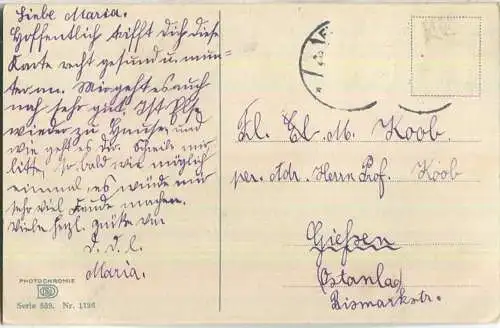 Liebe Maria.
Hoffentlich trifft dich diese
Karte recht gesund u. mun-
ter an. Mir geht es auch
noch sehr gut. Ist Else
wieder zu Hause, und
wie geht es dir. Schreibe mir
bitte so bald wie möglich
einmal, es würde mir
sehr viel Freude machen.
Viele herzl. Grüße von
D. d. l.
Maria.
Frl. El. M. Koob
per. Adr. Herrn Prof. Koob
Gießen
Ostanlage
Bismarckstr.
PHOTOCHROMIE
Serie 559. Nr. 1196